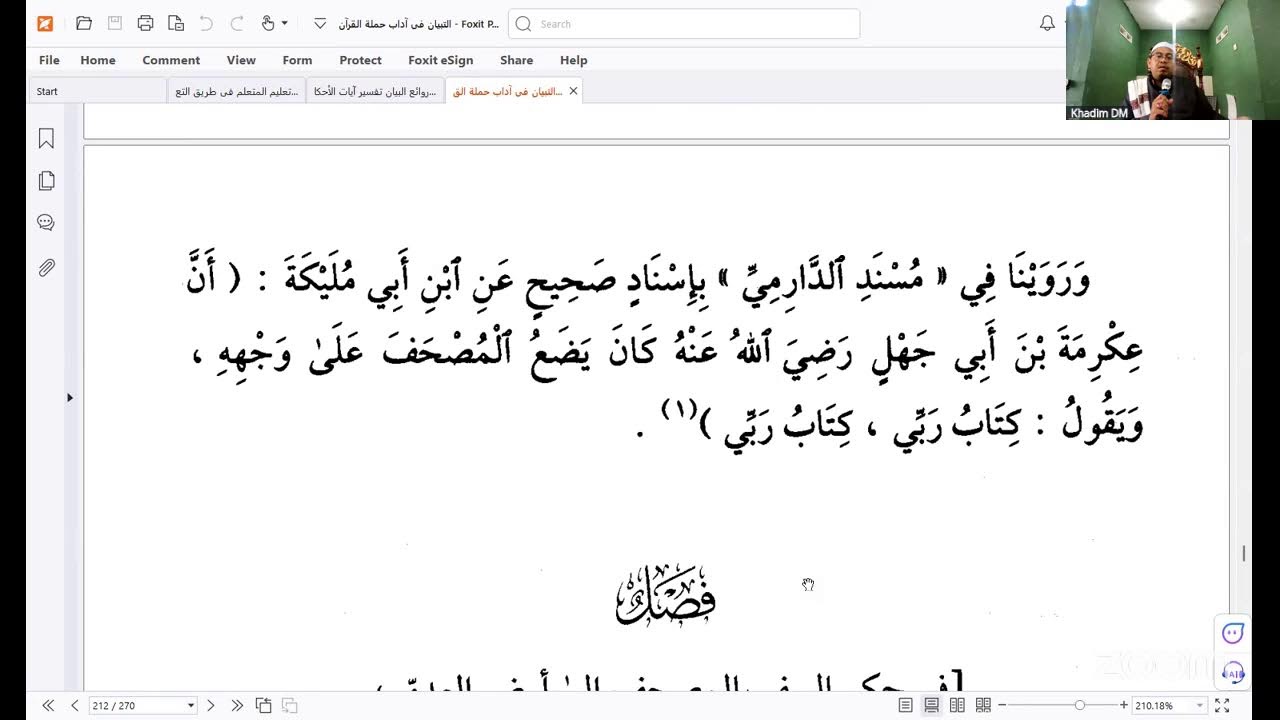 التبيان في آداب حملة القرآن - Foxit P...
Search
File Home Comment View Form Protect Foxit eSign Share Help
Start
تعليم المتعلم في طريق التع...
روائع البيان تفسير آيات الأحكا...
التبيان في آداب حملة الق...
Khadim DM
وَرَوَيْنَا فِي « مُسْنَدِ ٱلدَّارِمِيِّ » بِإِسْنَادٍ صَحِيحٍ عَنِ ٱبْنِ أَبِي مُلَيْكَةَ : ( أَنَّ
عِكْرِمَةَ بْنَ أَبِي جَهْلٍ رَضِيَ ٱللهُ عَنْهُ كَانَ يَضَعُ ٱلْمُصْحَفَ عَلَىٰ وَجْهِهِ ،
وَيَقُولُ : كِتَابُ رَبِّي ، كِتَابُ رَبِّي )(١) .
فَصْلٌ
zoom
212 / 270
210.18%